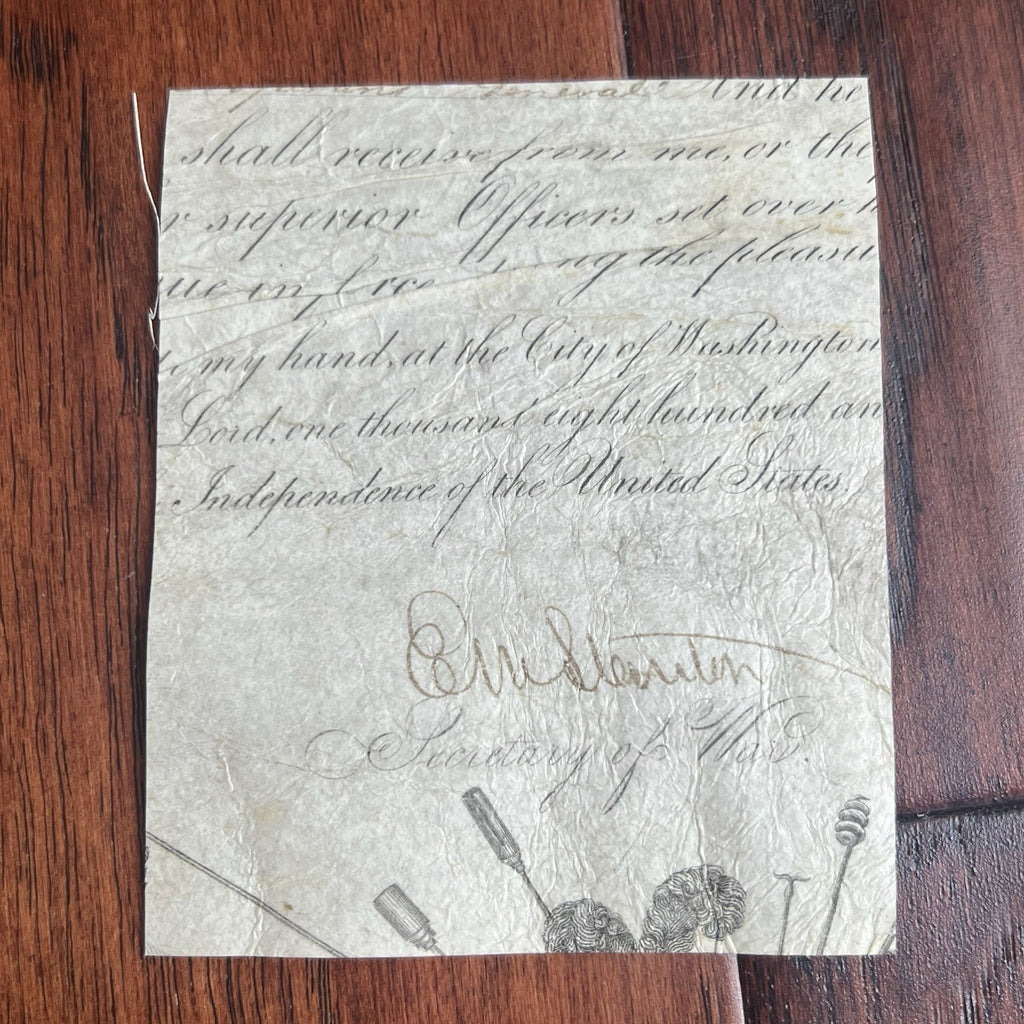 General. And he
shall receive from me, or the
r superior Officers set over h
ue in force ng the pleasu
my hand, at the City of Washington
Lord, one thousand eight hundred an
Independence of the United States.
EMStanton
Secretary of War.